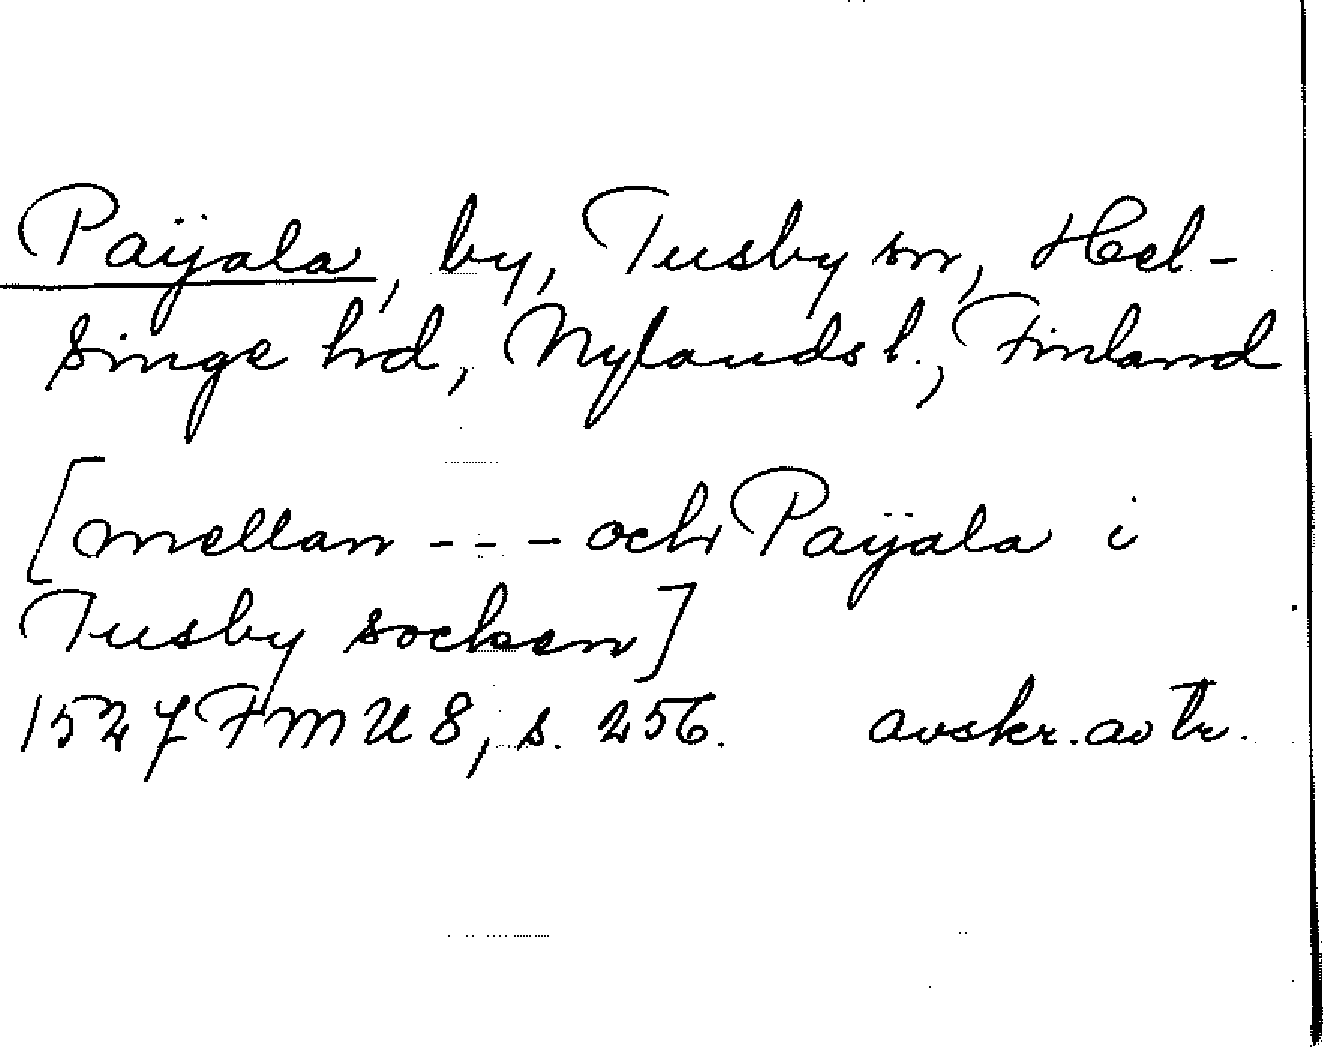 Paijala, by, Tusby sn, Hel-
singe hd, Nylands l., Finland
[mellan --- och Paijala i
Tusby socken]
1527 FMU 8, s. 256. avskr. av tr.